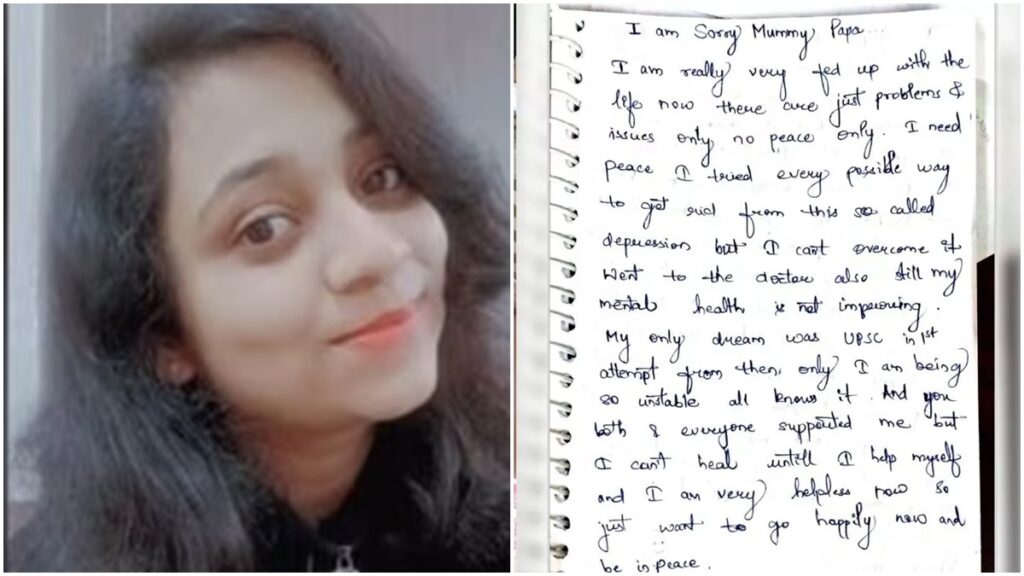 I am Sorry Mummy Papa...
I am really very fed up with the
life now there are just problems &
issues only no peace only. I need
peace I tried every possible way
to get rid from this so called
depression but I can't overcome it
went to the doctor also still my
mental health is not improving.
My only dream was UPSC in 1st
attempt from then only I am being
so unstable all knows it. And you
both & everyone supported me but
I can't heal untill I help myself
and I am very helpless now so
just want to go happily now and
be in peace.